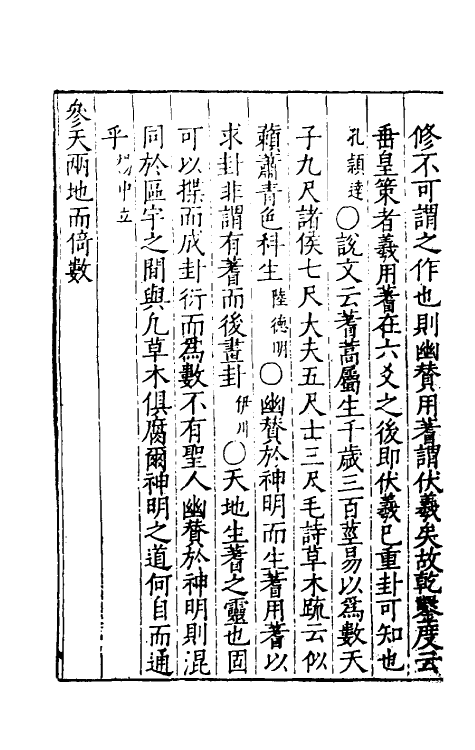 修不可謂之作也則幽賛用蓍謂伏羲矣故乾鑿度云
垂皇策者羲用蓍在六爻之後即伏羲已重卦可知也
孔穎達〇說文云蓍蒿屬生千歲三百莖易以爲數天
子九尺諸侯七尺大夫五尺士三尺毛詩草木疏云似
藾蕭青色科生陸德明〇幽賛於神明而生蓍用蓍以
求卦非謂有蓍而後畫卦伊川〇天地生蓍之靈也固
可以揲而成卦衍而爲數不有聖人幽賛於神明則混
同於區宇之間與凢草木俱腐爾神明之道何自而通
乎楊中立
參天兩地而倚數